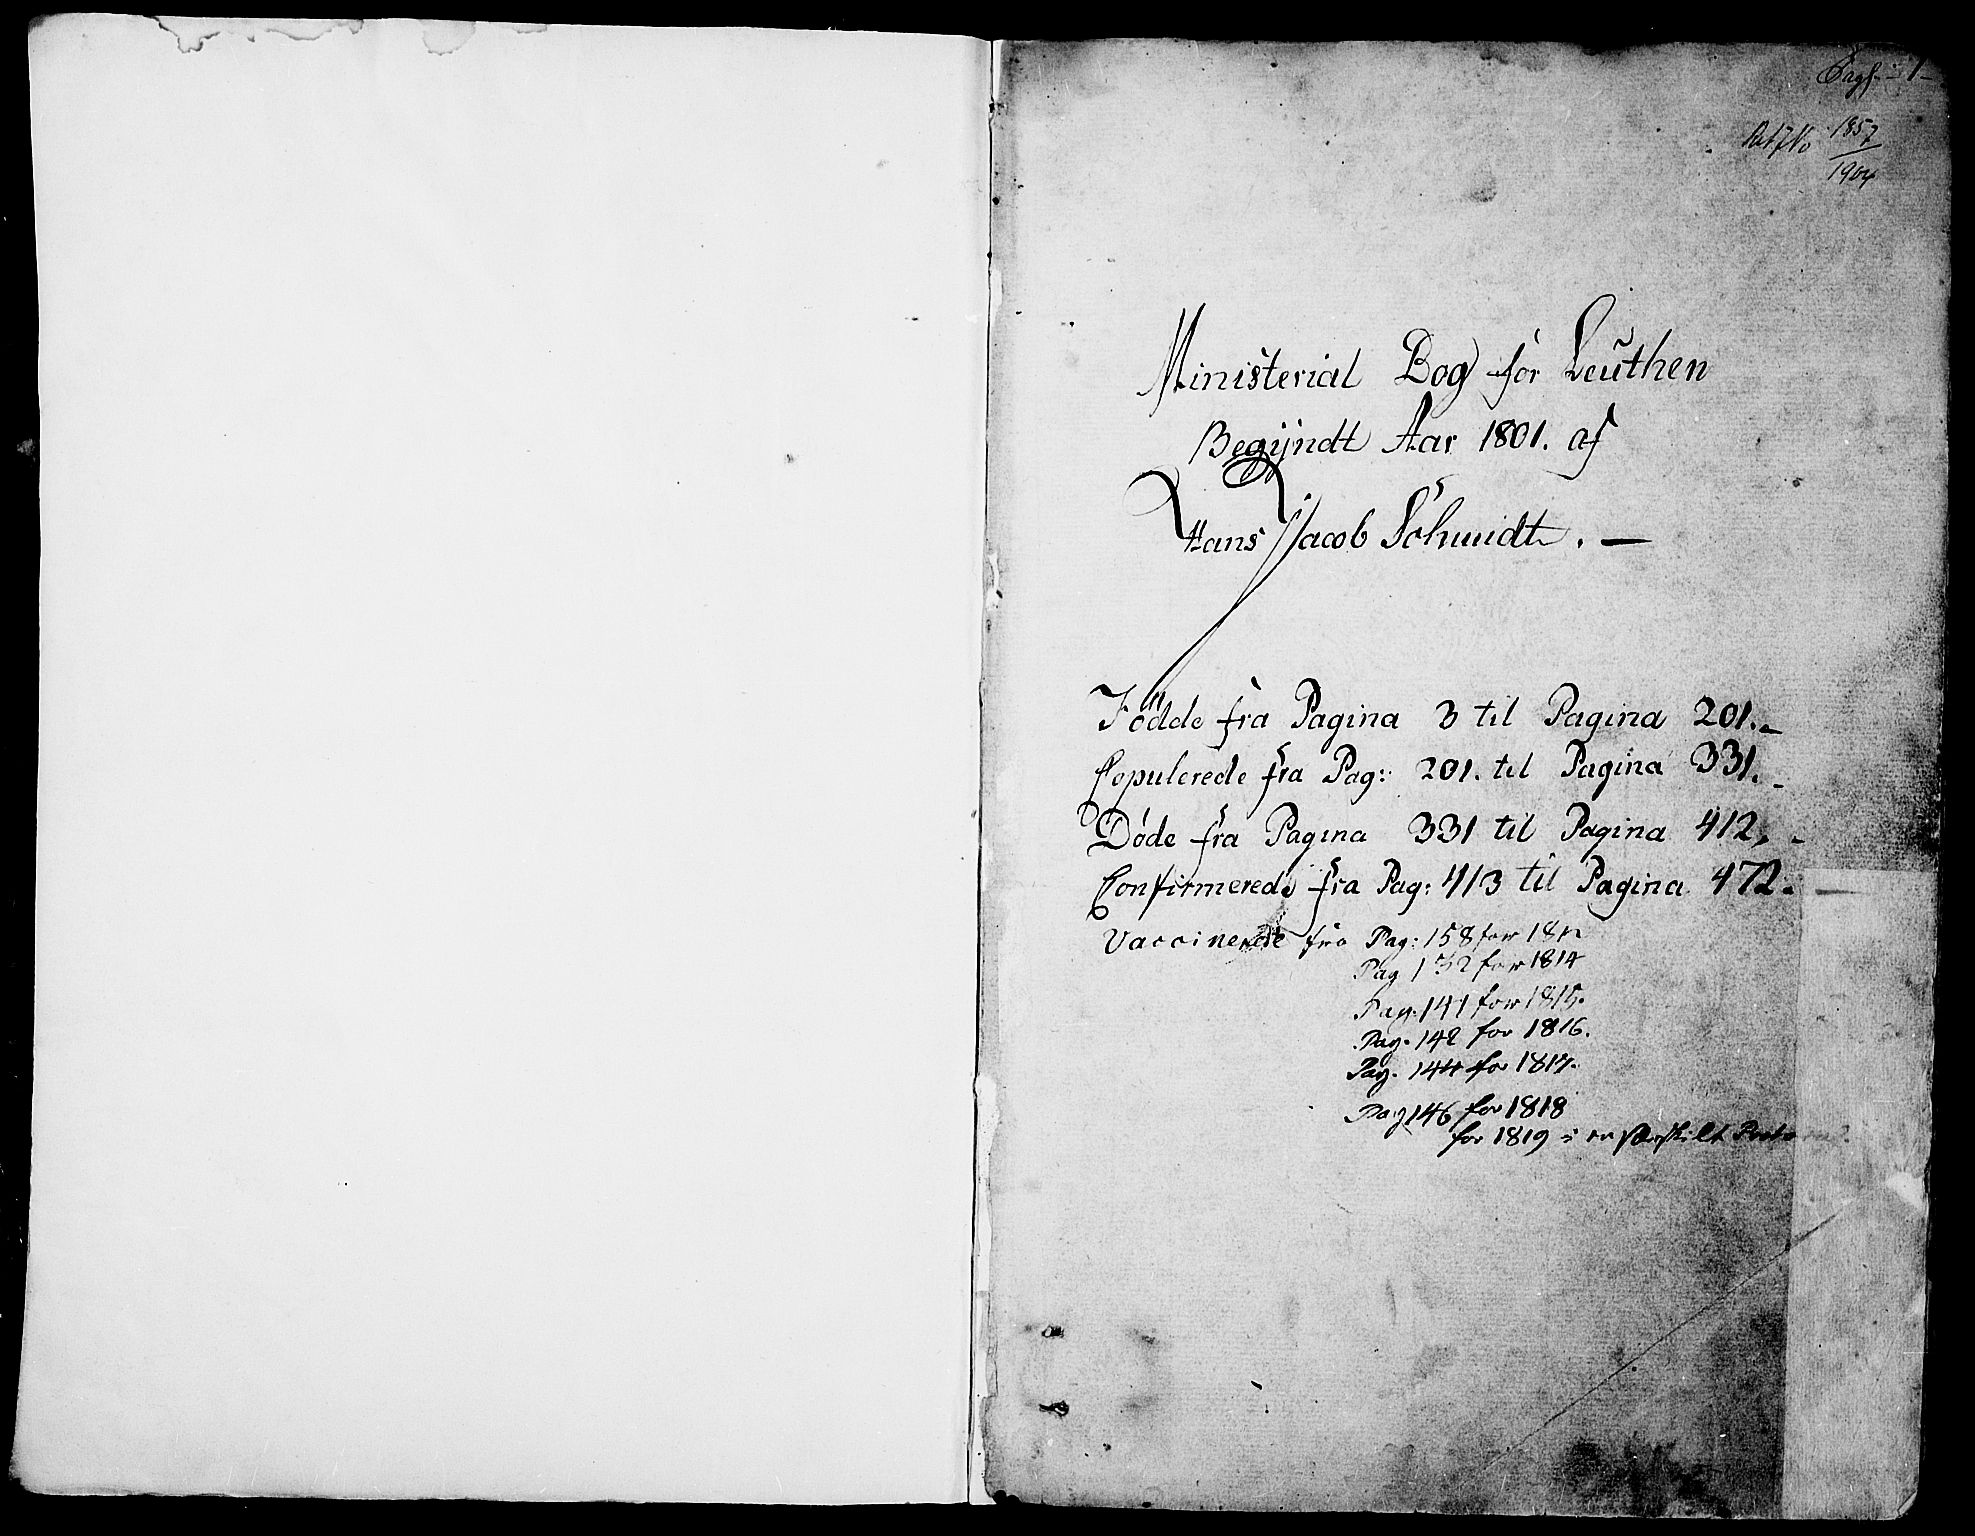 Pag: 1
1857
1904
Ministerial Bog for Leuthen
Begyndt Aar 1801. af
Hans Jacob Schmidt. —
Födde fra Pagina 3 til Pagina 201. -
Copulerede fra Pag: 201. til Pagina 331. -
Døde fra Pagina 331 til Pagina 412, -
Confirmerede fra Pag: 413 til Pagina 472. -
Vaccinerede fra Pag: 158 for
Pag 132 for 1814
Pag. 141 for 1815.
Pag. 142 for 1816.
Pag. 144 for 1817.
Pag 146 for 1818
for 1819 i en særskilt